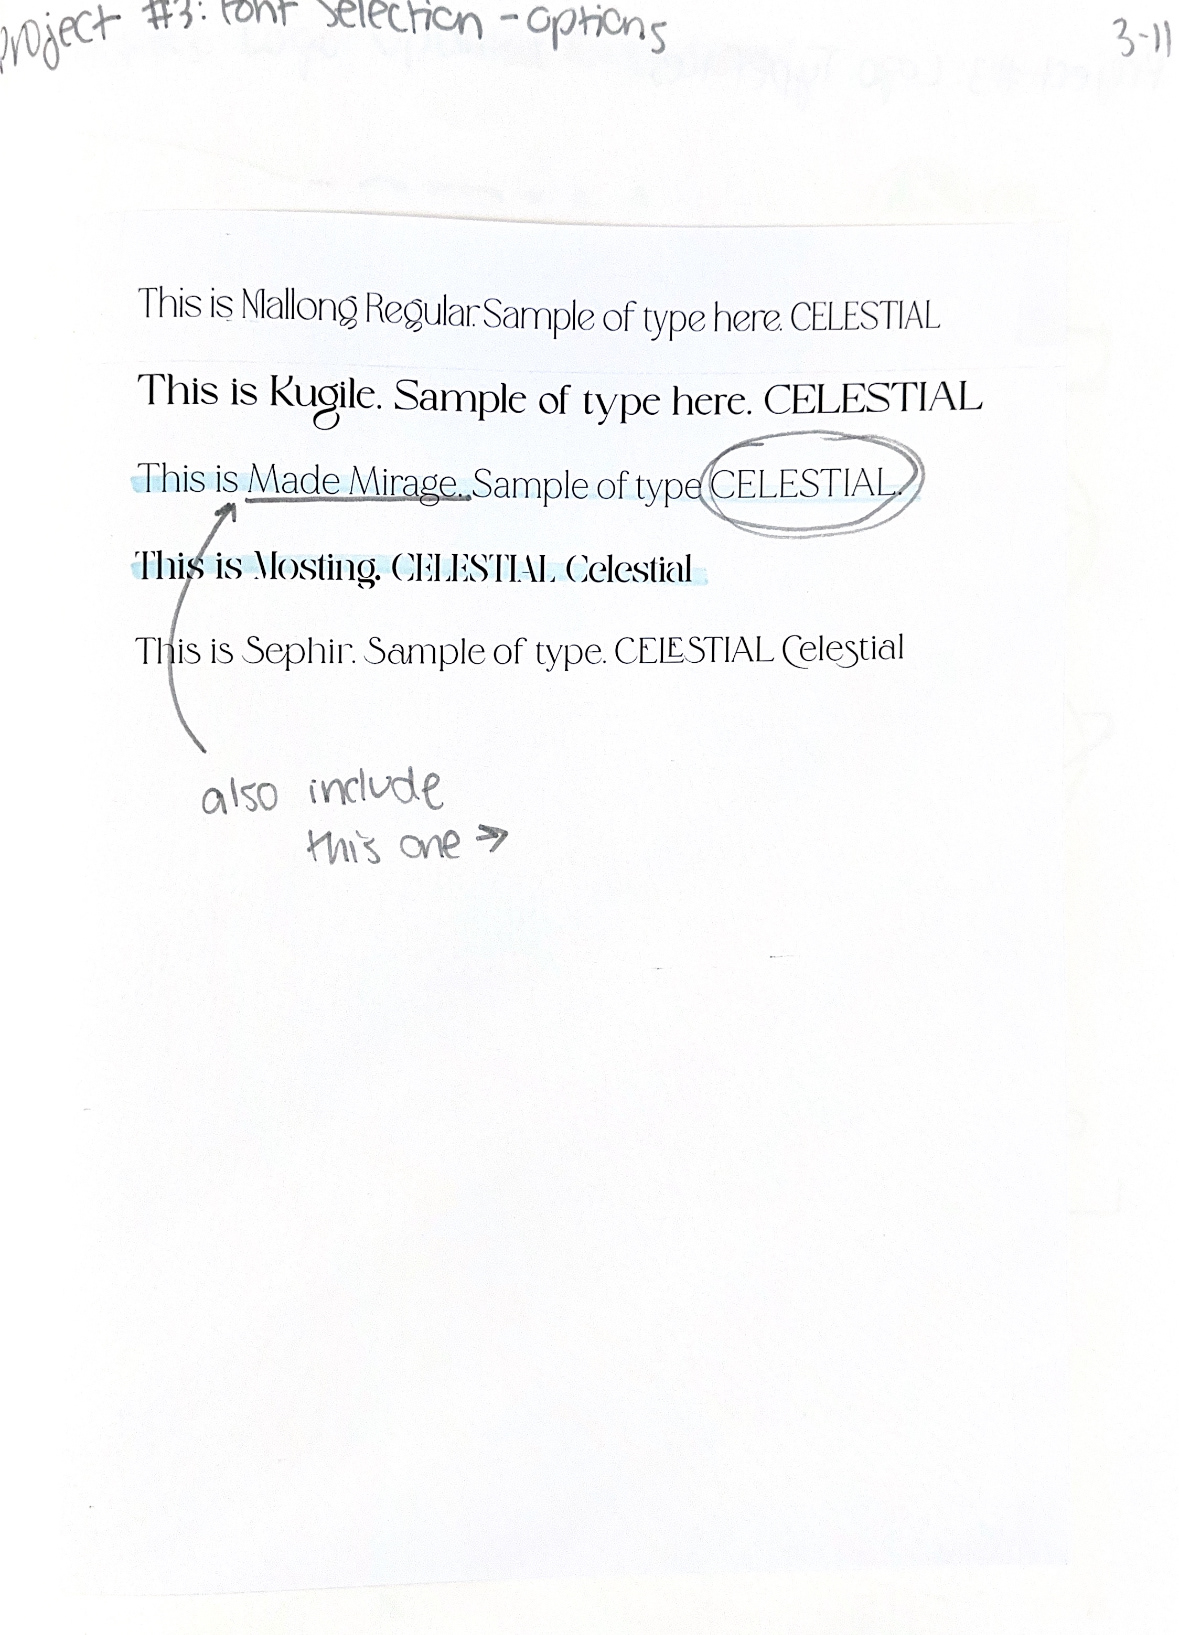 Project #3: Font Selection - options
3-11
This is Mallong Regular. Sample of type here. CELESTIAL
This is Kugile. Sample of type here. CELESTIAL
This is Made Mirage. Sample of type CELESTIAL.
This is Mosting. CELESTIAL Celestial
This is Sephir. Sample of type. CELESTIAL Celestial
also include
this one →